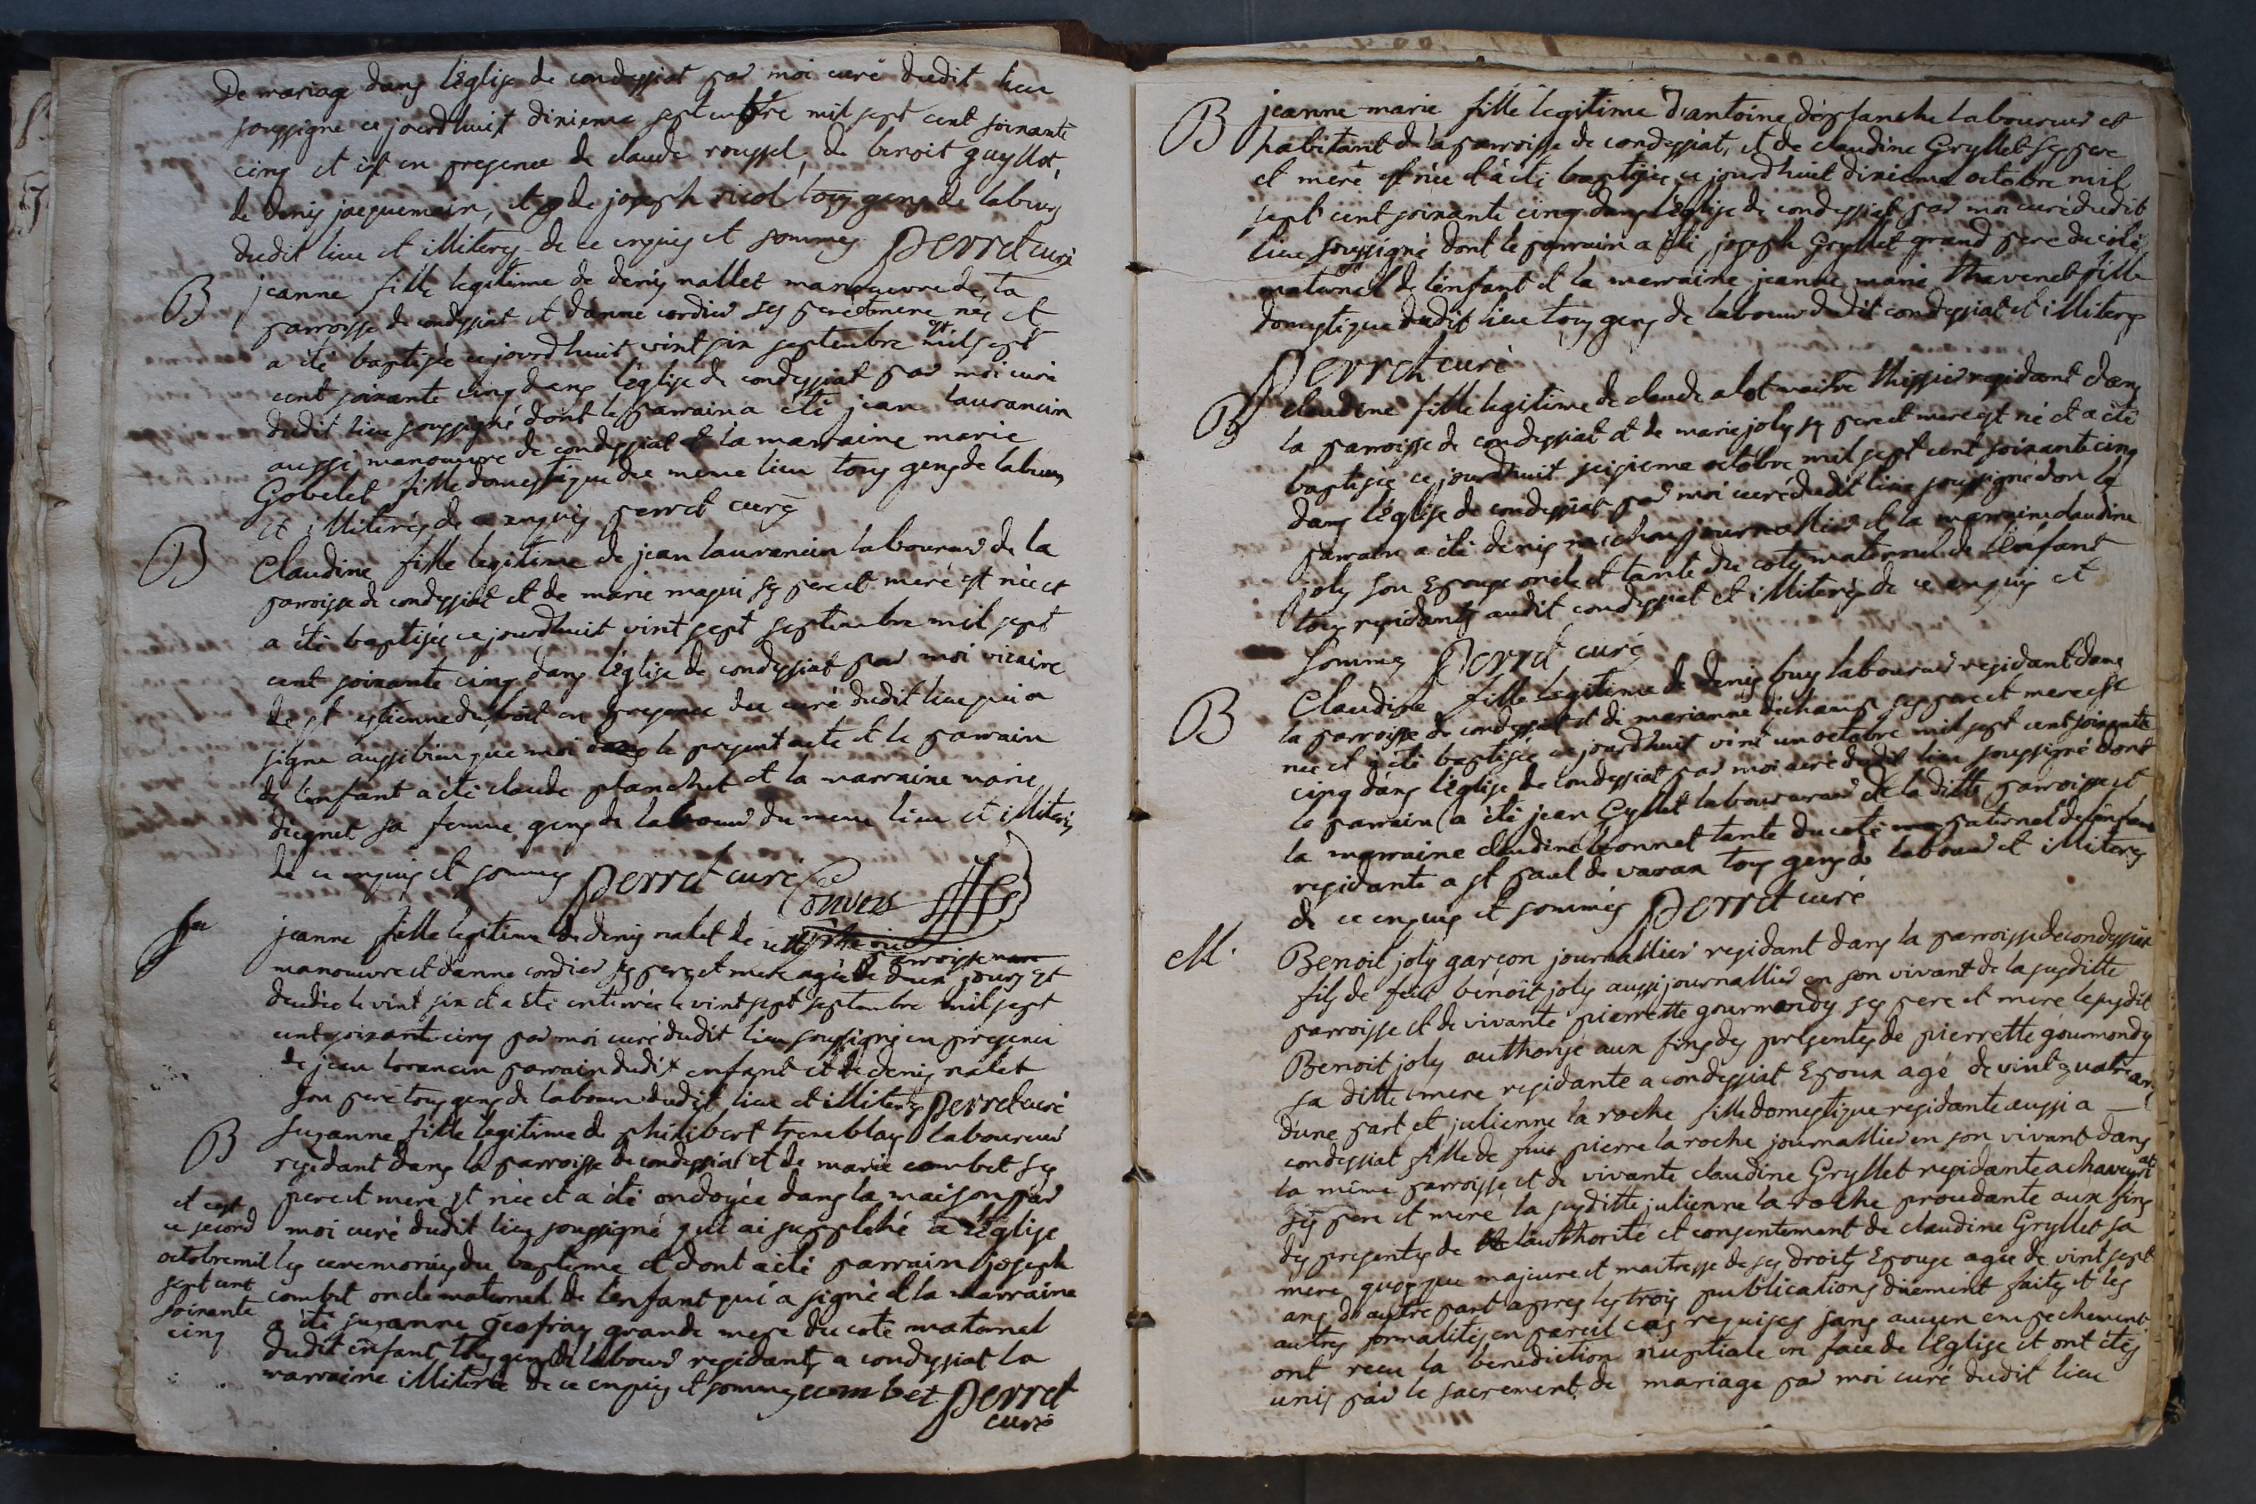 De mariage dans l'église de condessiat par moi curé dudit lieu
soussigné ce jourdhuit dixieme septembre mil sept cent soixante
cinq et ist en presence de claude roussel, de benoit guyllot,
de denis jacquemain, et de joseph nicol tous gens de labeur
dudit lieu et illiterés de ce enquis et sommés Perret curé
B jeanne fille legitime de denis nallet manoeuvre de la
parroisse de condessiat et d'anne cordier ses pere et mere nee et
a été baptisée ce jourdhuit vint six septembre mil sept
cent soixante cinq dans l'église de condessiat par moi curé
dudit lieu soussigné dont le parrain a été jean laurancin
aussi manoeuvre de condessiat et la marraine marie
Gobelet fille domestique du meme lieu tous gens de labeur
et illiterés de ce enquis perret curé
B Claudine fille legitime de jean laurancin laboureur de la
parroisse de condessiat et de marie ses pere et mere est née et
a été baptisée ce jourdhuit vint sept septembre mil sept
cent soixante cinq dans l'église de condessiat par moi vicaire
de st estienne du bois en presence du curé dudit lieu qui a
signé aussi bien que moi le present acte et le parrain
de l'enfant a été claude planchet et la marraine marie
sa femme gens de labour du meme lieu et illiterés
de ce enquis et sommés Perret curé Convers
jeanne fille legitime de denis nalet de cette parroisse
manouvre et d'anne cordier ses pere et mere agée de deux jours est
decedée le vint six et a été enterrée le vint sept septembre mil sept
cent soixante cinq par moi curé dudit lieu soussigné en presence
de jean lorancin parrain dudit enfant et de denis nalet
son pere tous gens de labour dudit lieu et illiterés Perret curé
B Suzanne fille legitime de philibert tremblay laboureur
residant dans la parroisse de condessiat et de marie combet ses
pere et mere est née et a été ondoyée dans la maison par
moi curé dudit lieu soussigné qui ai suppléhé a l'église
et cest
ce second
octobre mil
sept cent
soixante
cinq
les ceremonies du bapteme et dont a été parrain joseph
combet oncle maternel de l'enfant qui a signé et la marraine
a été suzanne geofray grande mere du coté maternel
dudit enfant tous gens de labour residants a condessiat la
marraine illiterée de ce enquis et sommés combet Perret
curé
B jeanne-marie fille legitime d'antoine desplanche laboureur et
habitant de la parroisse de condessiat, et de claudine Gryllet ses pere
et mere est née et a été baptisée ce jourdhuit dixieme octobre mil
sept cent soixante cinq dans l'église de condessiat par moi curé dudit
lieu soussigné dont le parrain a été joseph Gryllet grand pere du coté
maternel de l'enfant et la marraine jeanne marie thevenet fille
domestique dudit lieu tous gens de labour dudit condessiat et illiterés
Perret curé
B claudine fille legitime de claude alot maitre thissier residant dans
la parroisse de condessiat et de marie joly ses pere et mere est né et a été
baptisée ce jourdhuit seisieme octobre mil sept cent soixante cinq
dans l'église de condessiat par moi curé dudit lieu soussigné dont le
parrain a été denis journallier et la marraine claudine
joly son Epouse oncle et tante du coté maternel de l'enfant
tous residants audit condessiat et illiterés de ce enquis et
sommés Perret curé
B Claudine fille legitime de denis buy laboureur residant dans
la parroisse de condessiat et de marianne dechaux ses pere et mere est
née et a été baptisée ce jourdhuit vint un octobre mil sept cent soixante
cinq dans l'église de condessiat par moi curé dudit lieu soussigné dont
le parrain a été jean Gyllet laboureur de la ditte parroisse et
la marraine claudine bonnet tante du coté paternel de l'enfant
residante a st paul de varax tous gens de labour et illiterés
de ce enquis et sommés Perret curé
M. Benoit joly garçon journallier residant dans la parroisse de condessiat
fils de feu benoit joly aussi journallier en son vivant de la susditte
parroisse et de vivante pierrette gourmondy ses pere et mere le susdit
Benoit joly authorisé aux fins des presentes de pierrette gourmondy
sa ditte mere residante a condessiat Epoux agé de vint quatre ans
d'une part et julienne la roche fille domestique residante aussi a
condessiat fille de feu pierre la roche journallier en son vivant dans
la même parroisse et de vivante claudine Gryllet residante a chaveyriat
ses pere et mere la susditte julienne la roche procedante aux fins
des presentes de l'authorité et consentement de claudine Gryllet sa
mere quoyque majeure et maitresse de ses droits Epouse agée de vint sept
ans d'autre part apres les trois publications duement faites et les
autres formalités en pareil cas requises sans aucun empechement
ont recu la benediction nuptiale en face de l'Eglise et ont étés
unis par le sacrement de mariage par moi curé dudit lieu